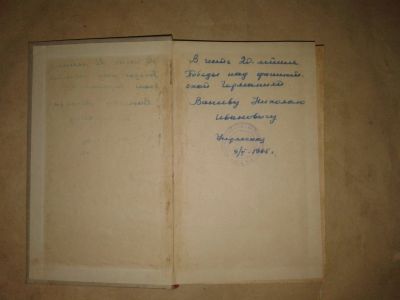 В честь 20-летия
Победы над фашист-
ской Германией
Ваневу Николаю
Ивановичу
9/V-1965 г.